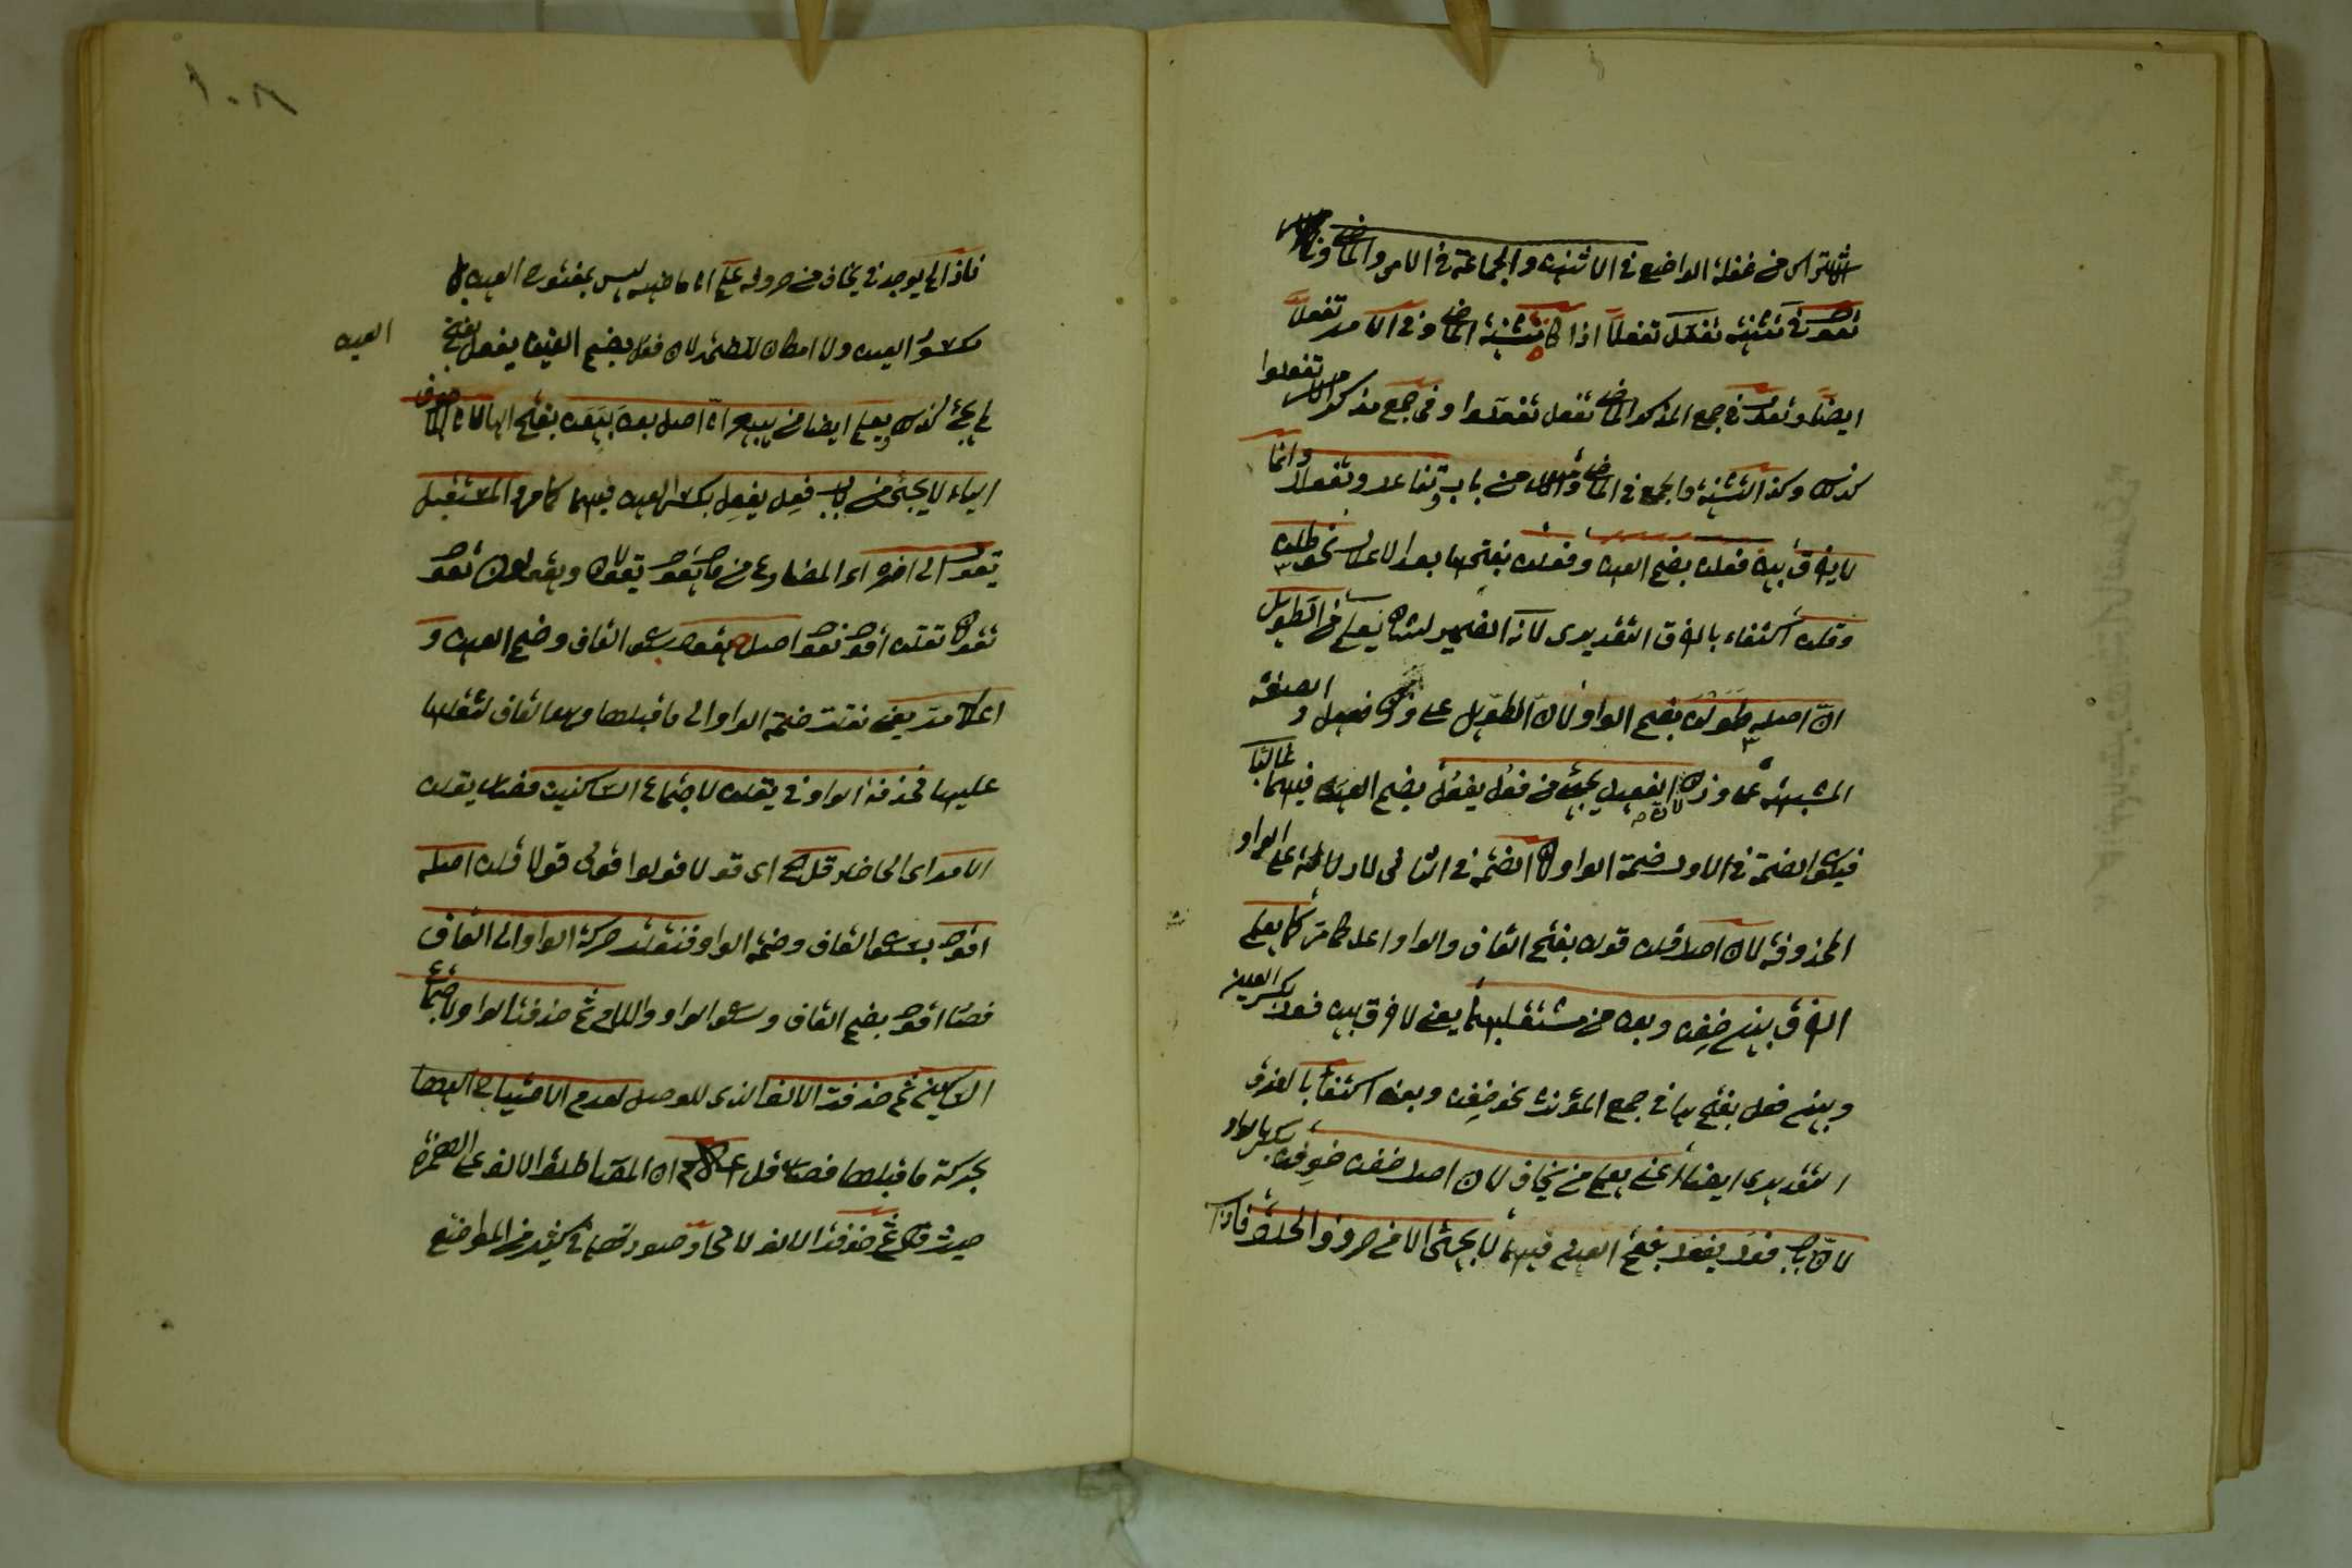 الاشتراك من غفلة الواضع في الاثنين والجماعة في الامر والماضي
تقول في تثنية تفعل تفعلا اذا كا تثنية الماضي وفي الامر تفعلا
ايضا وتقول في جمع المذكر الماضي تفعل تفعلوا وفي جمع مذكر الامر تفعلوا
كذلك وكذا التثنية والجمع في الماضي والامر من باب تفاعل وتفعلل وانما
لا يفرق بين فعلن بضم العين وفعلن بفتحها بعد الاعلال نحو طلن
وقلن اكتفاء بالفرق التقديري لانه الضمير يعلم من الطويل
ان اصله طولن بضم الواو لان الطويل على وزن فعيل و الصفة
المشبهة على وزن الفعيل يجئ من فعل يفعل بضم العين فيهما غالبا
فيكون الضمة في الاول ضمة الواو لا الضمة في الثاني للدلالة على الواو
المحذوفة لان اصل قلن قولن بفتح القاف والواو اعل كما مر كما يعلم
الفرق بين خفن وبعن من مستقبلهما يعني لا فرق بين فعلن بكسر العين
وبين فعل بفتحها في جمع المؤنث نحو خفن وبعن اكتفاء بالفرق
التقديري ايضا اعني يعلم من يخاف لان اصل خفن خوفن بكسر الواو
لان باب فعل يفعل بفتح العين فيهما لا يجئ الا من حروف الحلق فاذا
فاذا لم يوجد في يخاف من حروفه علم ان ماضيه ليس بمفتوح العين بل
مكسور العين ولا امكان للضم لان فعل بضم العين يفعل بفتح العين
لم يجئ كذلك ويعلم ايضا من يبيع ان اصل بعن بيعن بفتح الياء لان الاجوف
اليائي لا يجئ من باب فعل يفعل بكسر العين فيهما كما مر المستقبل
يقول الى اخره اى المضارع من قا يقول يقولان ويقولون تقول
تقولان تقلن اقول نقول اصله يقول بسكون القاف وضم العين و
اعلاله مر يعني نقلت ضمة الواو الى ما قبلها وهو القاف لثقلها
عليها فحذف الواو في يقلن لاجتماع الساكنين فصار يقلن
الامر اى الحاضر قل الخ اى قولا قولوا قولى قولا قلن اصله
اقول بسكون القاف وضم الواو فنقلت حركة الواو الى القاف
فصار اقول بضم القاف وسكون الواو واللام ثم حذف الواو لاجتماع
الساكنين ثم حذفت الالف الذي للوصل لعدم الاحتياج اليها
بحركة ما قبلها فصار قل اعلم ان المصنف اطلق الالف على الهمزة
حيث قال ثم حذفت الالف لاتحاد صورتهما في كثير من المواضع
١٠٨